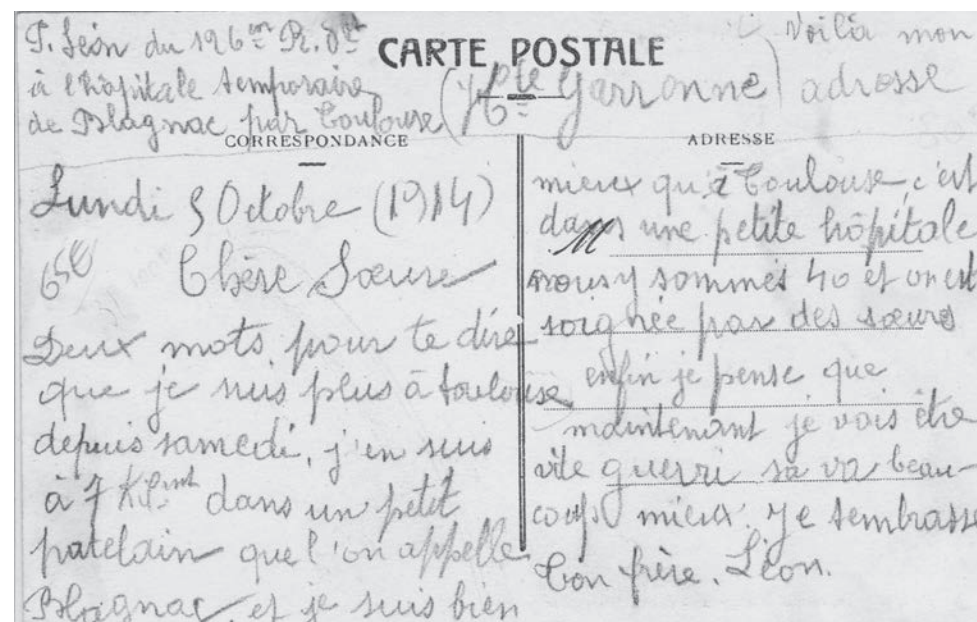 Voilà mon
adresse
P. Léon du 126ème R. d'It
à l'hôpitale temporaire
de Blagnac par Toulouse (Hte Garronne)
CARTE POSTALE
CORRESPONDANCE
ADRESSE
Lundi 5 Octobre (1914)
Chère Sœure
Deux mots pour te dire
que je suis plus à toulouse
depuis samedi, j'en suis
à 7 dans un petit
patelain que l'on appelle
Blagnac, et je suis bien
mieux qu'à Toulouse, c'est
dans une petite hôpitale
M
nous y sommes 40 et on est
soignée par des sœurs
enfin je pense que
maintenant je vais être
vite guerri sa va beau-
coup mieux. Je tembrasse
Ton frère. Léon.